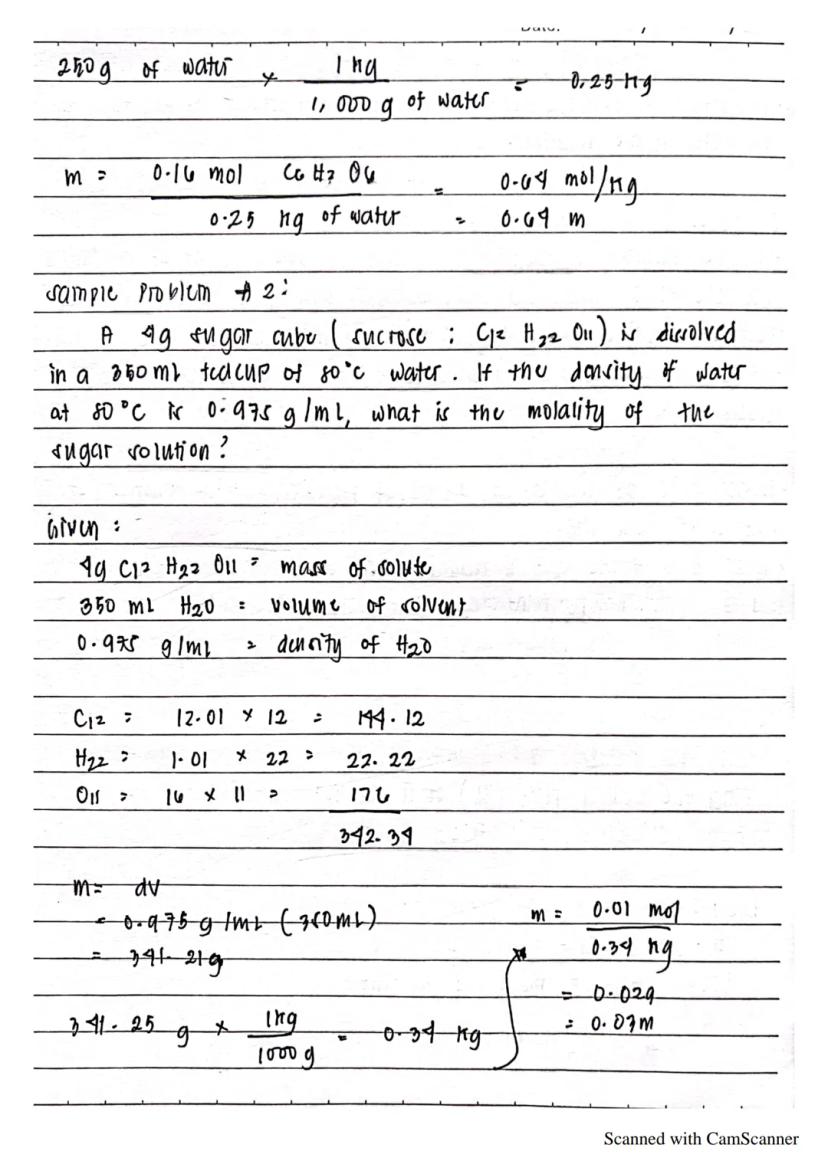 Date: / /
250 g of water x 1 kg / 1,000 g of water = 0.25 kg
m = 0.16 mol C6 H7 O6 / 0.25 kg of water = 0.64 mol/kg
= 0.64 m
Sample Problem # 2:
A 4g sugar cube ( sucrose : C12 H22 O11 ) is dissolved
in a 350 ml teacup of 80 °C water. If the density of water
at 80 °C is 0.975 g/mL, what is the molality of the
sugar solution?
Given :
4g C12 H22 O11 = mass of solute
350 mL H2O = volume of solvent
0.975 g/mL = density of H2O
C12 = 12.01 x 12 = 144.12
H22 = 1.01 x 22 = 22.22
O11 = 16 x 11 = 176
342.34
m = dv
= 0.975 g/mL (350mL)
= 341.21g
341.25 g x 1kg / 1000 g = 0.34 kg
m = 0.01 mol / 0.34 kg
= 0.029
= 0.03m
Scanned with CamScanner